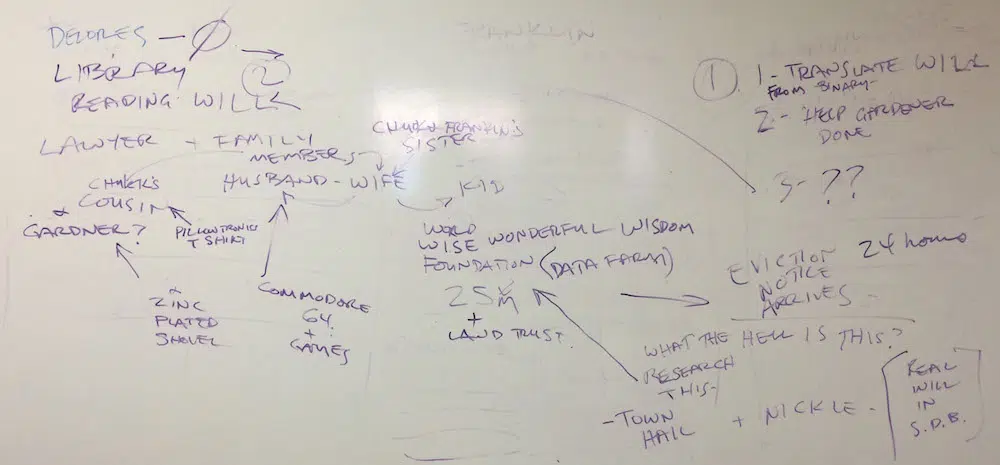 DELORES - Ø
LIBRARY
2
READING WILL
LAWYER + FAMILY
MEMBERS
CHUCK & FRANKLIN'S
SISTER
HUSBAND - WIFE
KID
CHUCK'S
COUSIN
&
GARDNER?
T SHIRT
ZINC
PLATED
SHOVEL
COMMODORE
64
+
GAMES
WORLD
WISE WONDERFUL WISDOM
FOUNDATION (DATA FARM)
25M
+
LAND TRUST
FRANKLIN
1
1 - TRANSLATE WILL
FROM BINARY
2 - HELP GARDENER
DONE
3 - ??
EVICTION 24 hours
NOTICE
ARRIVES -
WHAT THE HELL IS THIS?
RESEARCH
THIS -
- TOWN
HALL + NICKLE -
REAL
WILL
IN
S.D.B.